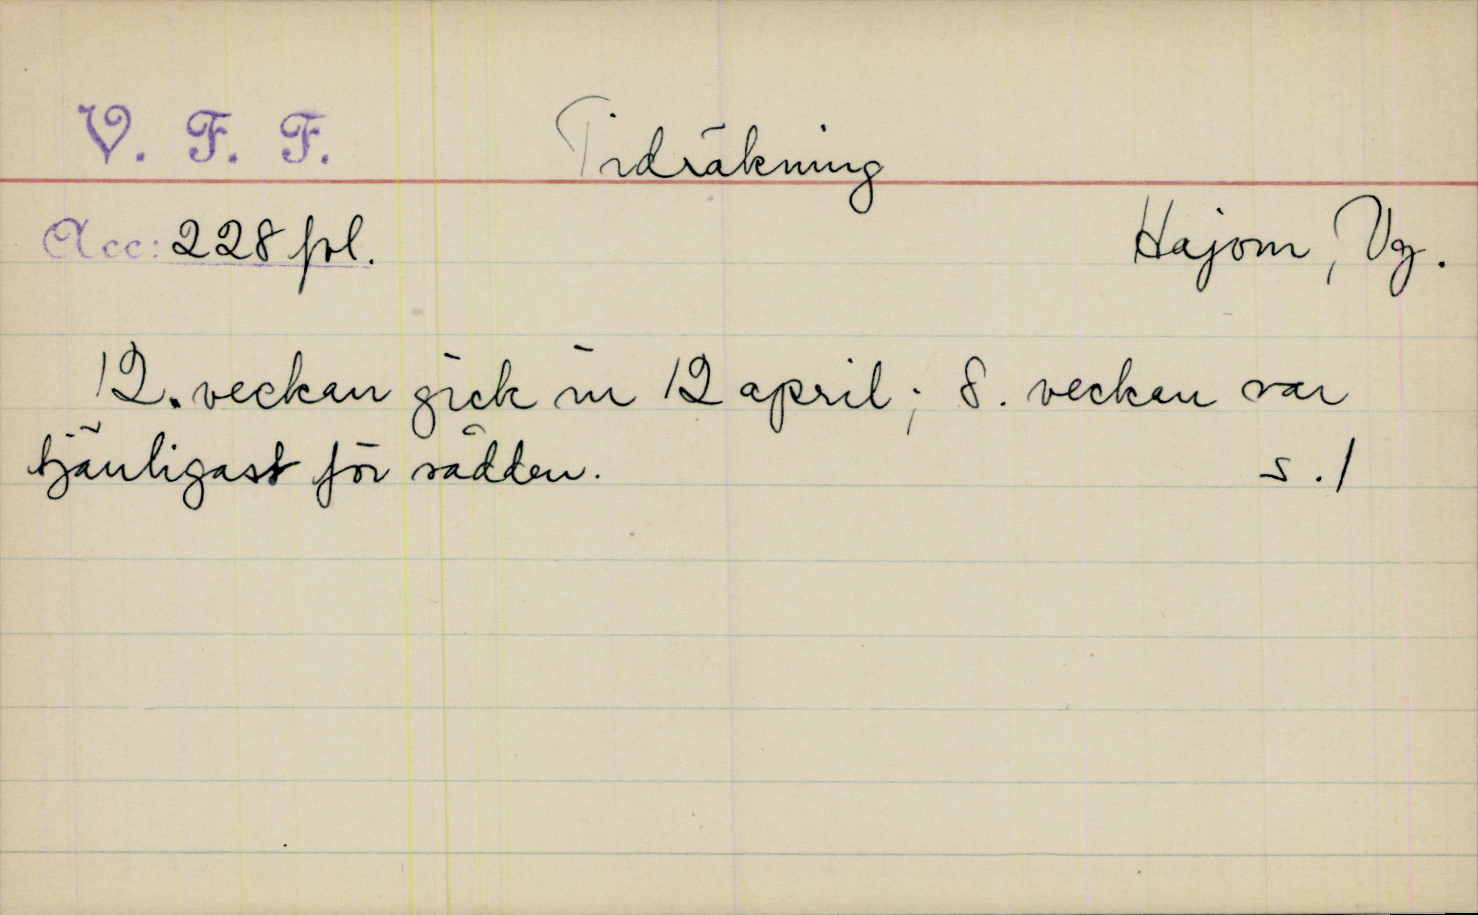 V. F. F.
Tidräkning
Acc: 228 fol.
Hajom, Vg.
12. veckan gick in 12 april; 8. veckan var
tjänligast för sådden.
s. 1